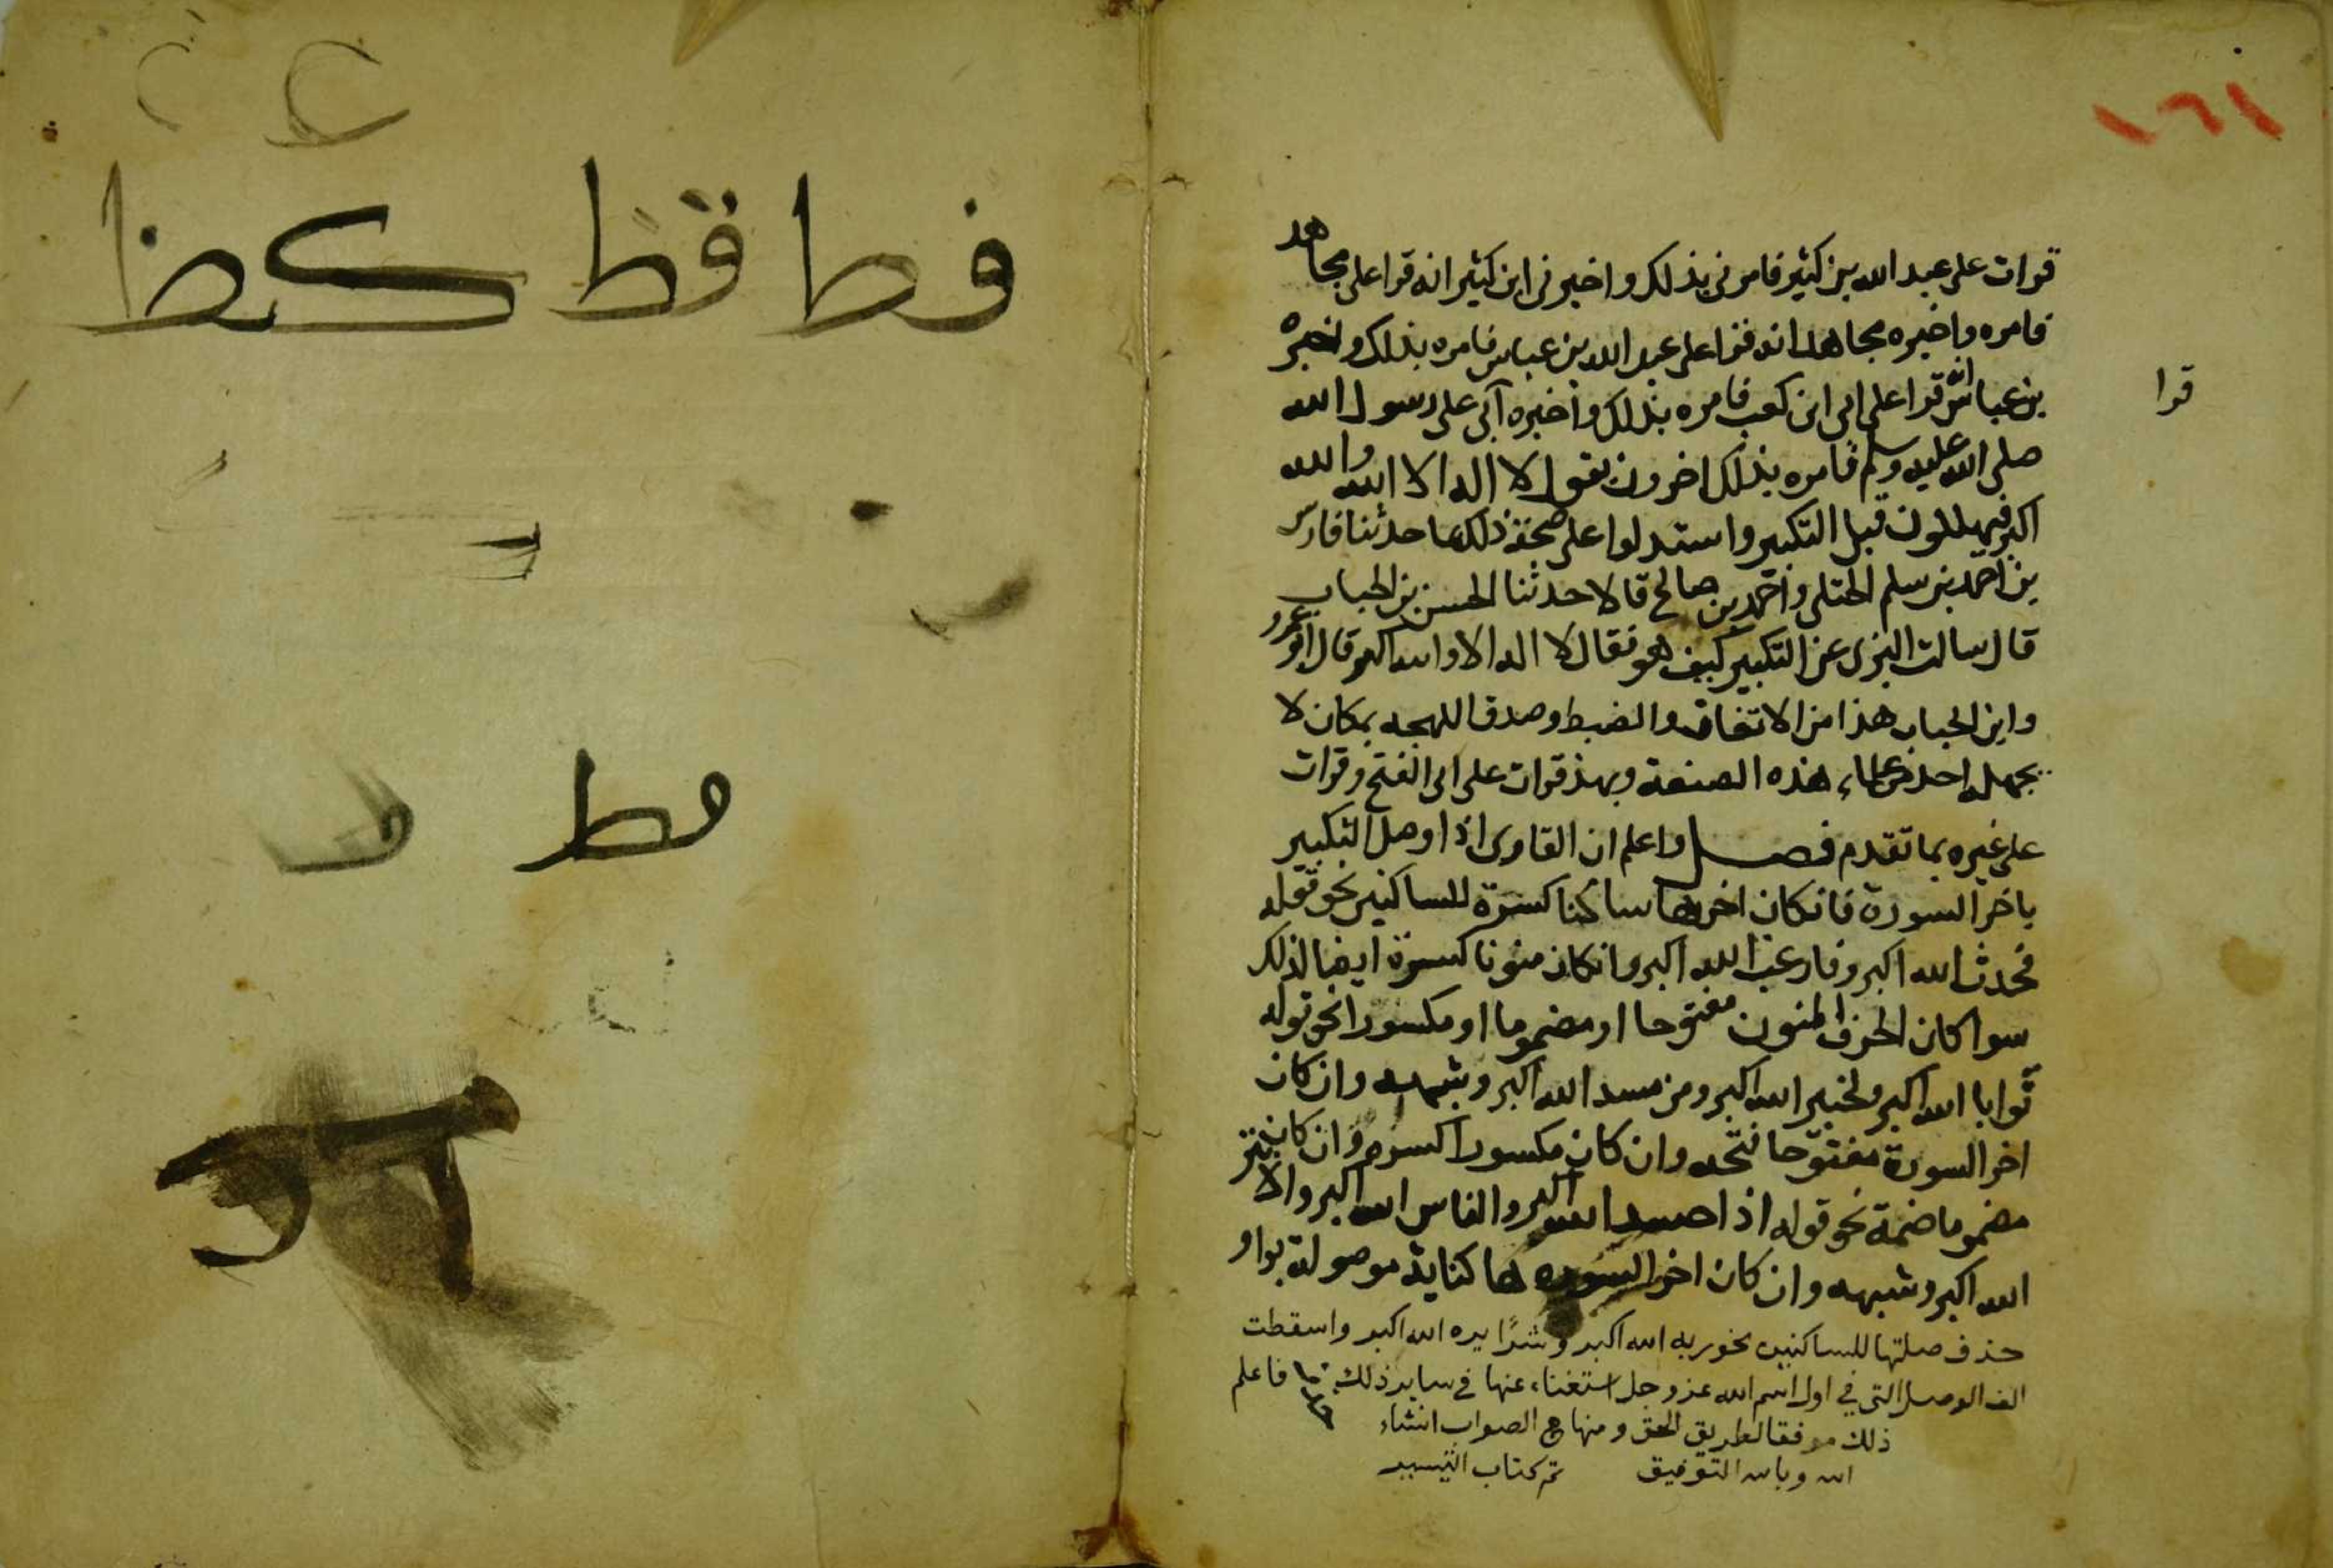 ١٦١
قرات على عبد الله بن كثير فامرنى بذلك واخبرنى ابن كثير انه قرا على مجاهد
فامره واخبره مجاهد انه قرا على عبد الله بن عباس فامره بذلك واخبره
بن عباس انه قرا على ابى ابن كعب فامره بذلك واخبره أبى على رسول الله
قرا
صلى الله عليه وسلم فامره بذلك اخرون نقول لا اله الا الله والله
اكبر فيهللون قبل التكبير واستدلوا على صحة ذلك بما حدثنا فارس
بن احمد بن سلم الختلى واحمد بن صالح قالا حدثنا الحسن بن الحباب
قال سالت البزى عن التكبير كيف هو فقال لا اله الا والله اكبر قال ابو عمرو
وابن الحباب هذا من الاتفاق والضبط وصدق اللهجه بمكان لا
يجهله احد من علماء هذه الصنعة وبهذ قرات على ابى الفتح وقرات
على غيره بما تقدم فصل واعلم ان القارى اذا وصل التكبير
باخر السورة فانكان اخرها ساكنا كسرة للساكنين نحو قوله
فحدث الله اكبر وفارغب الله اكبر وانكان منونا كسرة ايضا لذلك
سوا كان الحرف المنون مفتوحا او مضموما او مكسورا نحو قوله
توابا الله اكبر ولخبير الله اكبر ومن مسد الله اكبر وشبهه وان كان
اخر السورة مفتوحا فتحه وان كان مكسورا كسره وان كان
مضموما ضمة نحو قوله اذا حسد الله اكبر والناس الله اكبر والابتر
الله اكبر وشبهه وان كان اخر السوره ها كناية موصولة بواو
حذف صلتها للساكنين نحو ربه الله اكبر وشرًا يره الله اكبر واسقطت
الف الوصل التى في اول اسم الله عز وجل استغناء عنها في ساير ذلك فاعلم
ذلك موفقا لطريق الحق ومنهاج الصواب انشاء
الله وبالله التوفيق تم كتاب التيسير
فط قط كظ
مط